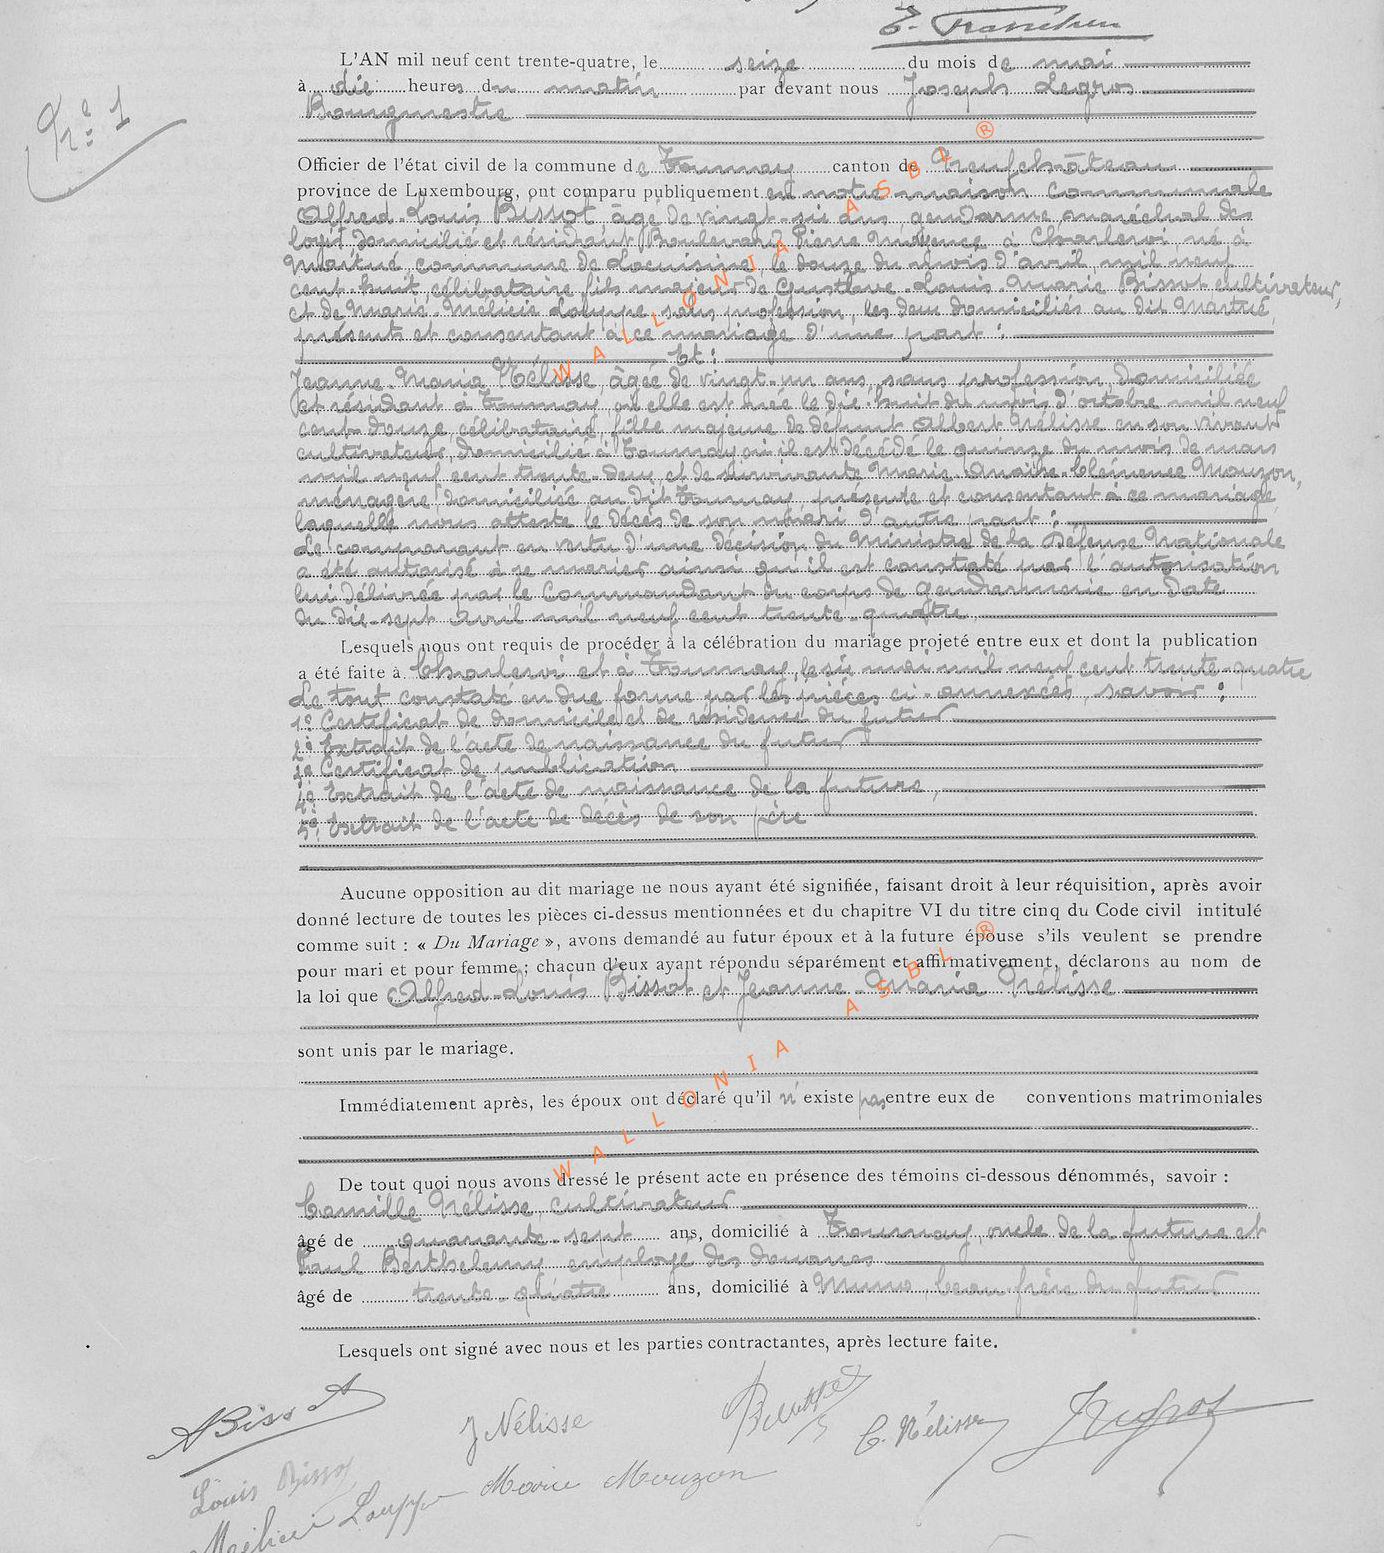 L'AN mil neuf cent trente-quatre, le seize du mois de mai
à dix heures du matin par devant nous Joseph Legros
Bourgmestre
Nº 1
Officier de l'état civil de la commune de Tournay canton de Neufchâteau
province de Luxembourg, ont comparu publiquement en notre maison communale
Alfred-Louis Bissot âgé de vingt-six ans, gendarme, maréchal des
logis domicilié et résidant Boulevard Pierre Mayence à Charleroi né à
Martué, commune de Lacuisine, le douze du mois d'avril mil neuf
cent-huit, célibataire, fils majeur de Gustave-Louis-Marie Bissot cultivateur,
et de Marie-Mélicie Louppe, sans profession, les deux domiciliés au dit Martué,
présents et consentant à ce mariage d'une part :
Et :
Jeanne-Maria Nélisse, âgée de vingt-un ans, sans profession, domiciliée
et résidant à Tournay, où elle est née le dix-huit du mois d'octobre mil neuf
cent-douze, célibataire, fille majeure de défunt Albert Nélisse en son vivant
cultivateur, domicilié à Tournay où il est décédé le quinze du mois de mars
mil neuf cent trente-deux et de survivante Marie-Clémence Mouzon,
ménagère, domiciliée au dit Tournay présente et consentant à ce mariage,
laquelle nous atteste le décès de son mari d'autre part ;
Le comparant en vertu d'une décision du Ministre de la Défense Nationale
a été autorisé à se marier ainsi qu'il est constaté par l'autorisation
lui délivrée par le Commandant du corps de gendarmerie en date
du dix-sept avril mil neuf cent trente-quatre.
Lesquels nous ont requis de procéder à la célébration du mariage projeté entre eux et dont la publication
a été faite à Charleroi et à Tournay, le six mai mil neuf cent trente-quatre
Le tout constaté en due forme par les pièces ci-annexées, savoir :
1º Certificat de domicile et de résidence du futur
2º Extrait de l'acte de naissance du futur
3º Certificat de publication
4º Extrait de l'acte de naissance de la future,
5º Extrait de l'acte de décès de son père
Aucune opposition au dit mariage ne nous ayant été signifiée, faisant droit à leur réquisition, après avoir
donné lecture de toutes les pièces ci-dessus mentionnées et du chapitre VI du titre cinq du Code civil intitulé
comme suit : « Du Mariage », avons demandé au futur époux et à la future épouse s'ils veulent se prendre
pour mari et pour femme ; chacun d'eux ayant répondu séparément et affirmativement, déclarons au nom de
la loi que Alfred-Louis Bissot et Jeanne-Maria Nélisse
sont unis par le mariage.
Immédiatement après, les époux ont déclaré qu'il n'existe pas entre eux de conventions matrimoniales
De tout quoi nous avons dressé le présent acte en présence des témoins ci-dessous dénommés, savoir :
Camille Nélisse, cultivateur
âgé de quarante-sept ans, domicilié à Tournay, oncle de la future et
Paul Barthelemy employé des douanes
âgé de trente-quatre ans, domicilié à Muno, beau-frère du futur
Lesquels ont signé avec nous et les parties contractantes, après lecture faite.
ABissot
J Nélisse
C. Nélisse
JLegros
Louis Bissot
Marie Mouzon
Mélicie Louppe
WALLONIA ASBL ®
WALLONIA ASBL ®